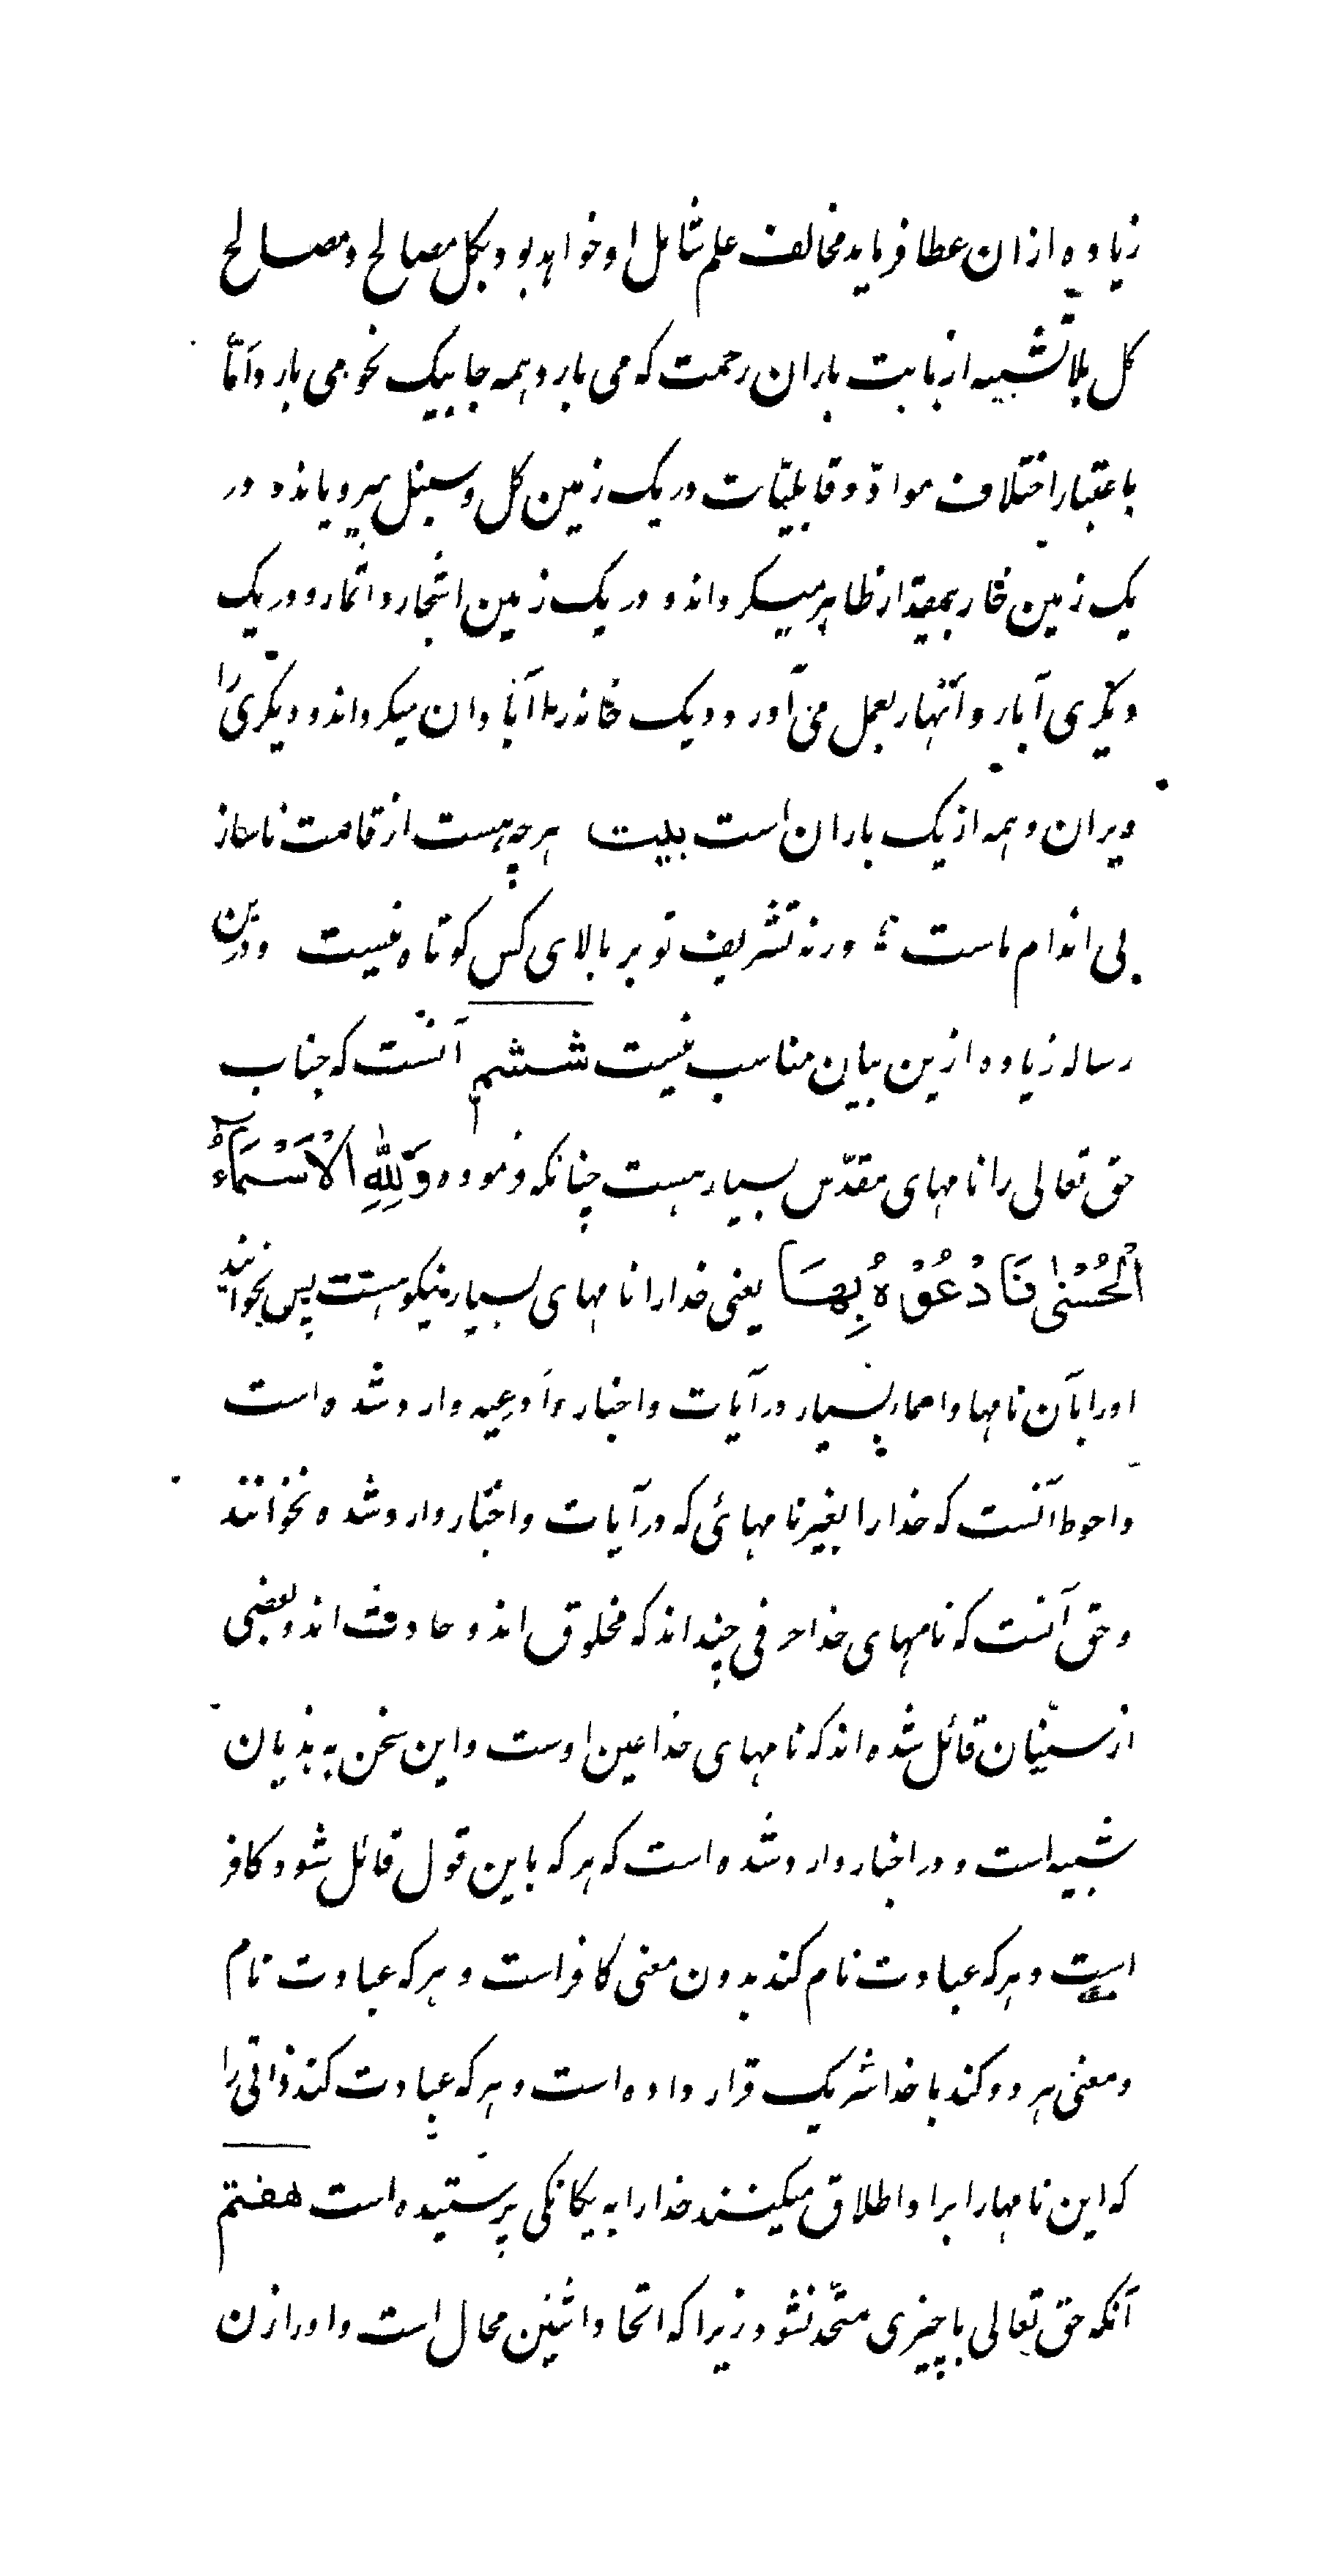 زیاده از ان عطا فرماید مخالف علم شامل او خواهد بود بکل مصالح و مصالح
کل بلا تشبیه از بابت باران رحمت که می بارد همه جا بیک نحو می بارد امّا
باعتبار اختلاف موادّ و قابلیّات در یک زمین کل و سنبل میرویاند و در
یک زمین خار بیمقدار ظاهر میکرداند و در یک زمین اشجار و اثمار و در یک
دیکری آبار و آنهار بعمل می آورد و یک خانه را آبادان میکرداند و دیکری را
ویران و همه از یک باران است بیت هرچه هست از قامت ناساز
بی اندام ماست ورنه تشریف تو بر بالای کس کوتاه نیست و درین
رساله زیاده ازین بیان مناسب نیست ششم آنست که جناب
حق تعالی را نامهای مقدّس بسیار هست چنانکه فرموده وَلِلّٰهِ الْاَسْمَآءُ
الْحُسْنٰی فَادْعُوْهُ بِهَا یعنی خدا را نامهای بسیار نیکو هست پس بخوانید
او را بآن نامها و اسماء بسیار در آیات و اخبار و اَدعیه وارد شده است
و احوط آنست که خدا را بغیر نامهائی که در آیات و اخبار وارد شده نخوانند
و حق آنست که نامهای خدا حرفی چنداند که مخلوق اند و حادث اند و بعضی
از سنّیان قائل شده اند که نامهای خدا عین اوست و این سخن به هذیان
شبیه است و در اخبار وارد شده است که هر که باین قول قائل شود کافر
است و هر که عبادت نام کند بدون معنی کافر است و هر که عبادت نام
و معنی هر دو کند با خدا شریک قرار داده است و هر که عبادت کند ذاتی را
که این نامها را بر او اطلاق میکنند خدا را به یکانکی پرستیده است هفتم
آنکه حق تعالی با چیزی متّحد نشود زیرا که اتحاد اثنین محال است و او را زن